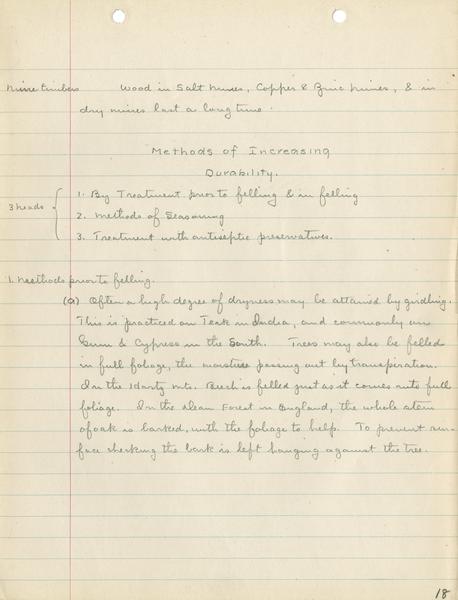 Mine timbers Wood in Salt mines, Copper & Zinc mines, & in
dry mines last a long time.
Methods of Increasing
Durability.
3 heads
1. By Treatment prior to felling & in felling
2. Methods of Seasoning
3. Treatment with antiseptic preservatives.
1. Methods prior to felling.
(a) Often a high degree of dryness may be attained by girdling.
This is practiced on Teak in India, and commonly on
Gum & Cypress in the South. Trees may also be felled
in full foliage, the moisture passing out by transpiration.
In the Hartz mts. Beech is felled just as it comes into full
foliage. In the Dean Forest in England, the whole stem
of oak is barked, with the foliage to help. To prevent sur-
face checking the bark is left hanging against the tree.
18